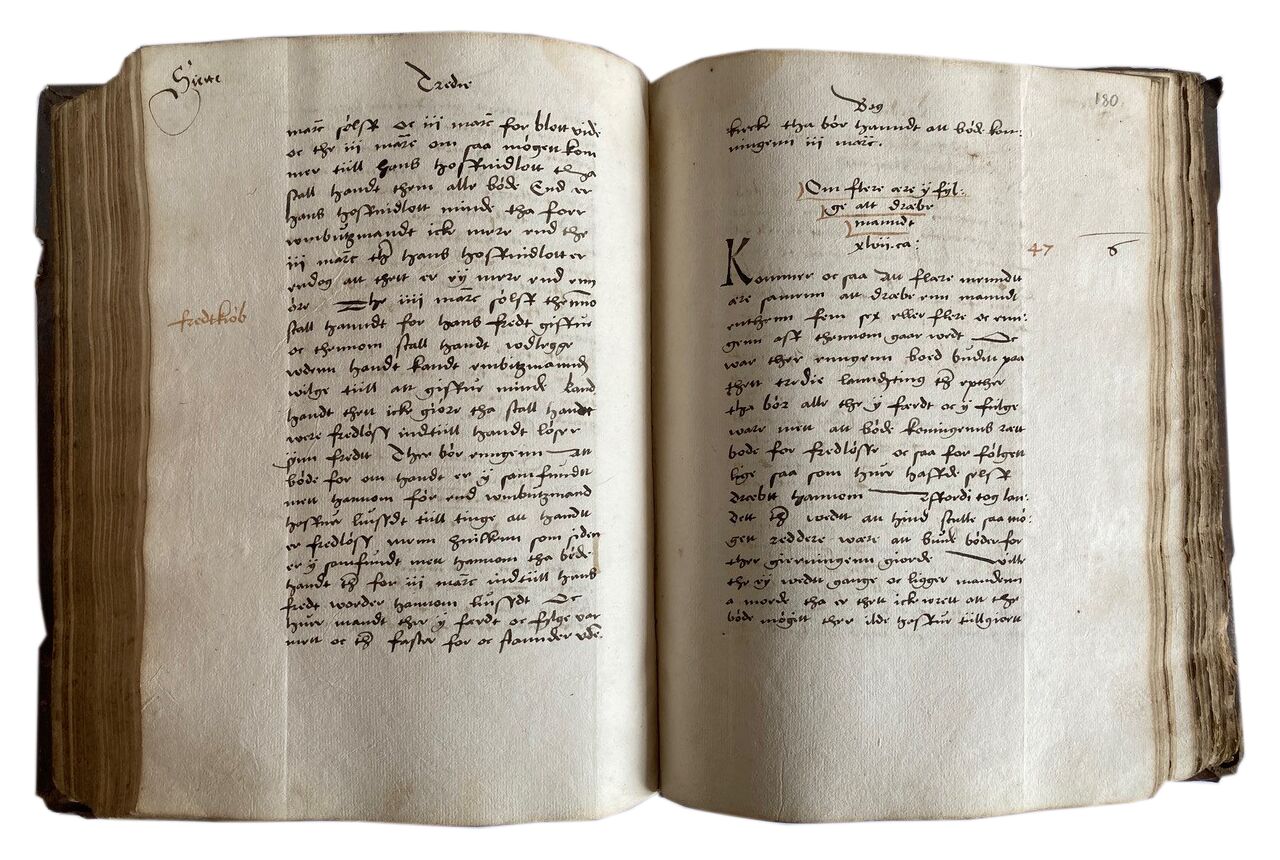 Tredie
marc sølff oc iii marc for blott vide
oc the iii marc om saa møgett kom
mer till hans hoffuidlott tha
skall handt them alle bøde End er
hans hoffuidlott minde tha forr
ombutzmandt icke mere end the
iii marc th hans hoffuidlott er
endog att thett er ey mere end enn
øre The iiii marc sølff thenno
skall hanndt for hans fredt giffue
oc thennom skall handt vdlegge
wdenn handt kandt ombutzmannds
vilge till att giffue minde kand
handt thett icke giøre tha skall handt
were fredløss indtill handt løser
synn fredt Ther bør enngenn att
bøde for om handt er y samfundtt
mett hannom før end ombutzmand
haffuer liussdt till tinge att handtt
er fredløss menn huilkenn som siden
er y samfundt mett hannom tha bøde
handt th for iii marc indtill hans
fredt worder hannom liussdt Oc
huer mandt ther y færdt oc følge var
mett oc th faster for oc stannder
fredtkiøb
Bog
180
kircke tha bør hanndt att bøde kon:
ningenn iii marc.
Om flere ære y føl:
ge att dræbe
manndt
xlvii.ca:
47
6
Kommer oc saa att flære menndtt
ære samenn att dræbe enn manndt
enthenn fem sex eller flere oc enn:
genn aff thennom gaar wedt Oc
war ther enngenn boed budtt paa
thett tredie lanndzting th epther
tha bør alle the y færdt oc y følge
ware mett att bøde konningenns rætt
bode for fredløsse oc saa for følgett
lige saa som huer haffde selff
dræbtt hannem Effterdi tog lan:
dett th wedtt att hind skulle saa mø:
gett reddere wære att biude bøder for
ther gierningenn giorde wille
the ey wedtt gange oc ligger mandenn
a morde tha er thett icke wrett att the
bøde møgitt ther ilde haffue till giortt